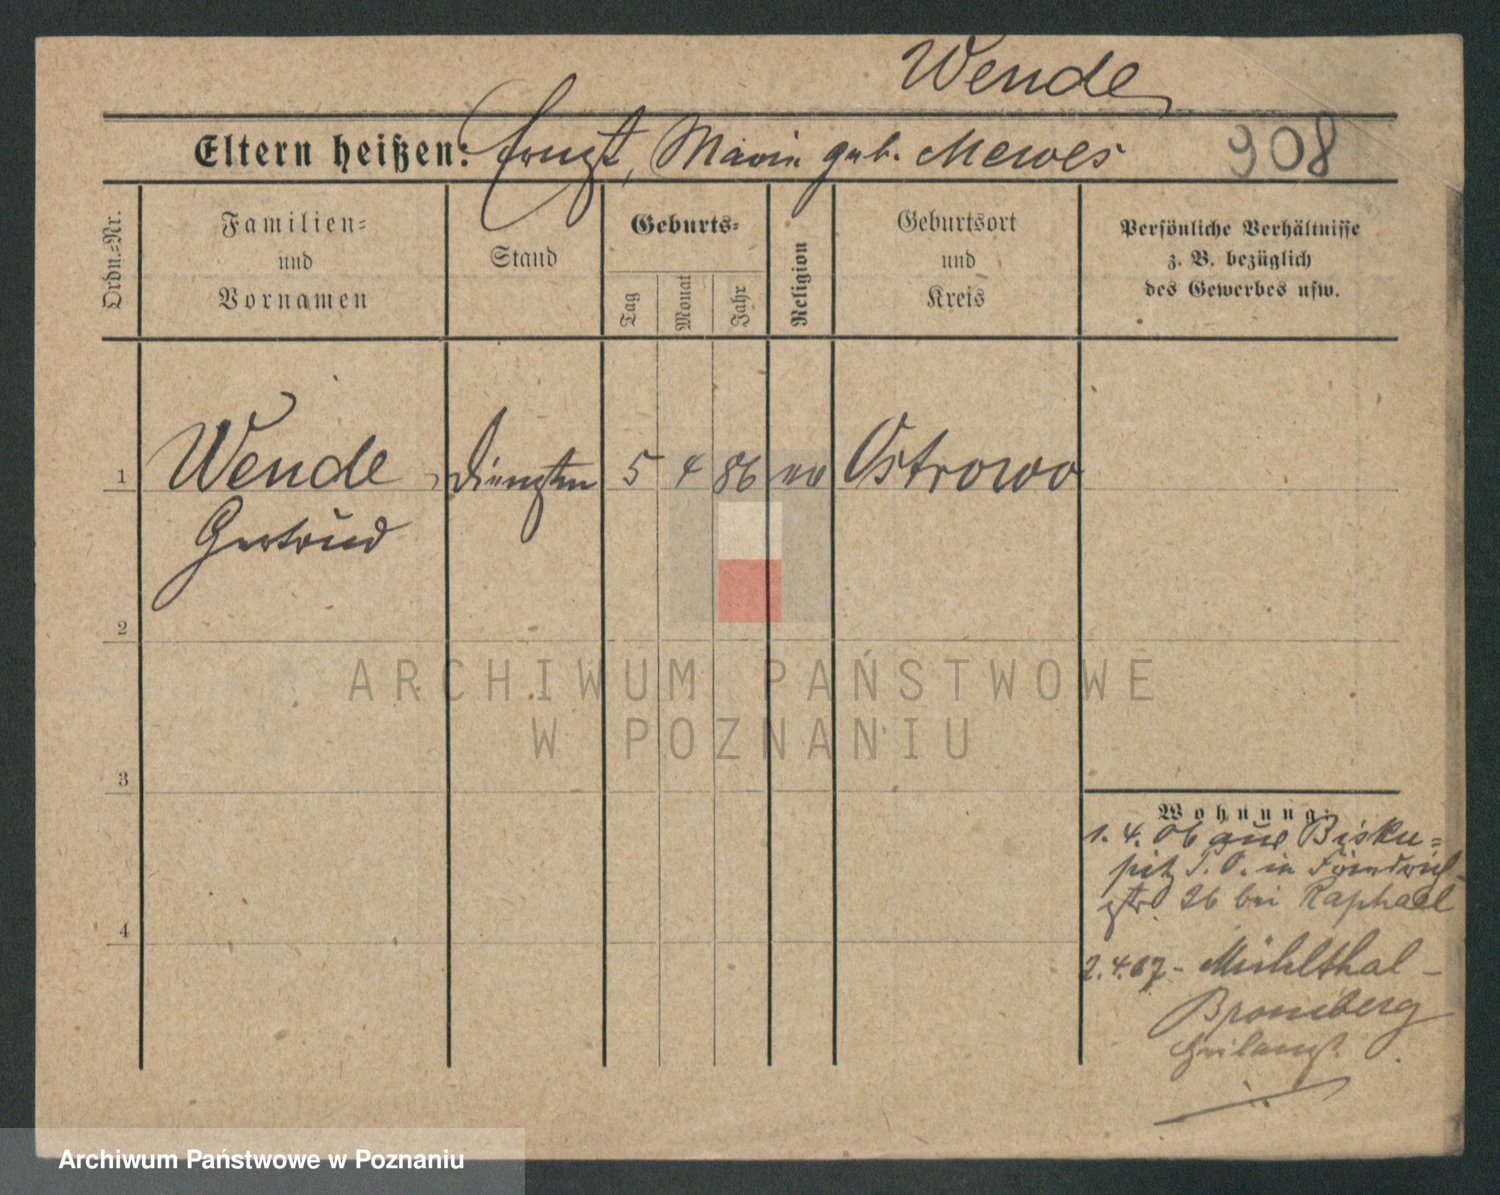 Wende
Eltern heißen: Ernst, Marie geb. Mewes
908
Ordn.=Nr.
Familien=
und
Vornamen
Stand
Geburts=
Tag
Monat
Jahr
Religion
Geburtsort
und
Kreis
Persönliche Verhältnisse
z. B. bezüglich
des Gewerbes usw.
1 Wende, 5 4 86 ev Ostrowo
Gertrud
2
3
4
Wohnung:
1. 4. 06 aus Bisku=
pitz S. O. in
str. 26 bei Raphael
2.4.07 - Mühlthal -
Bromberg
ARCHIWUM PAŃSTWOWE
W POZNANIU
Archiwum Państwowe w Poznaniu